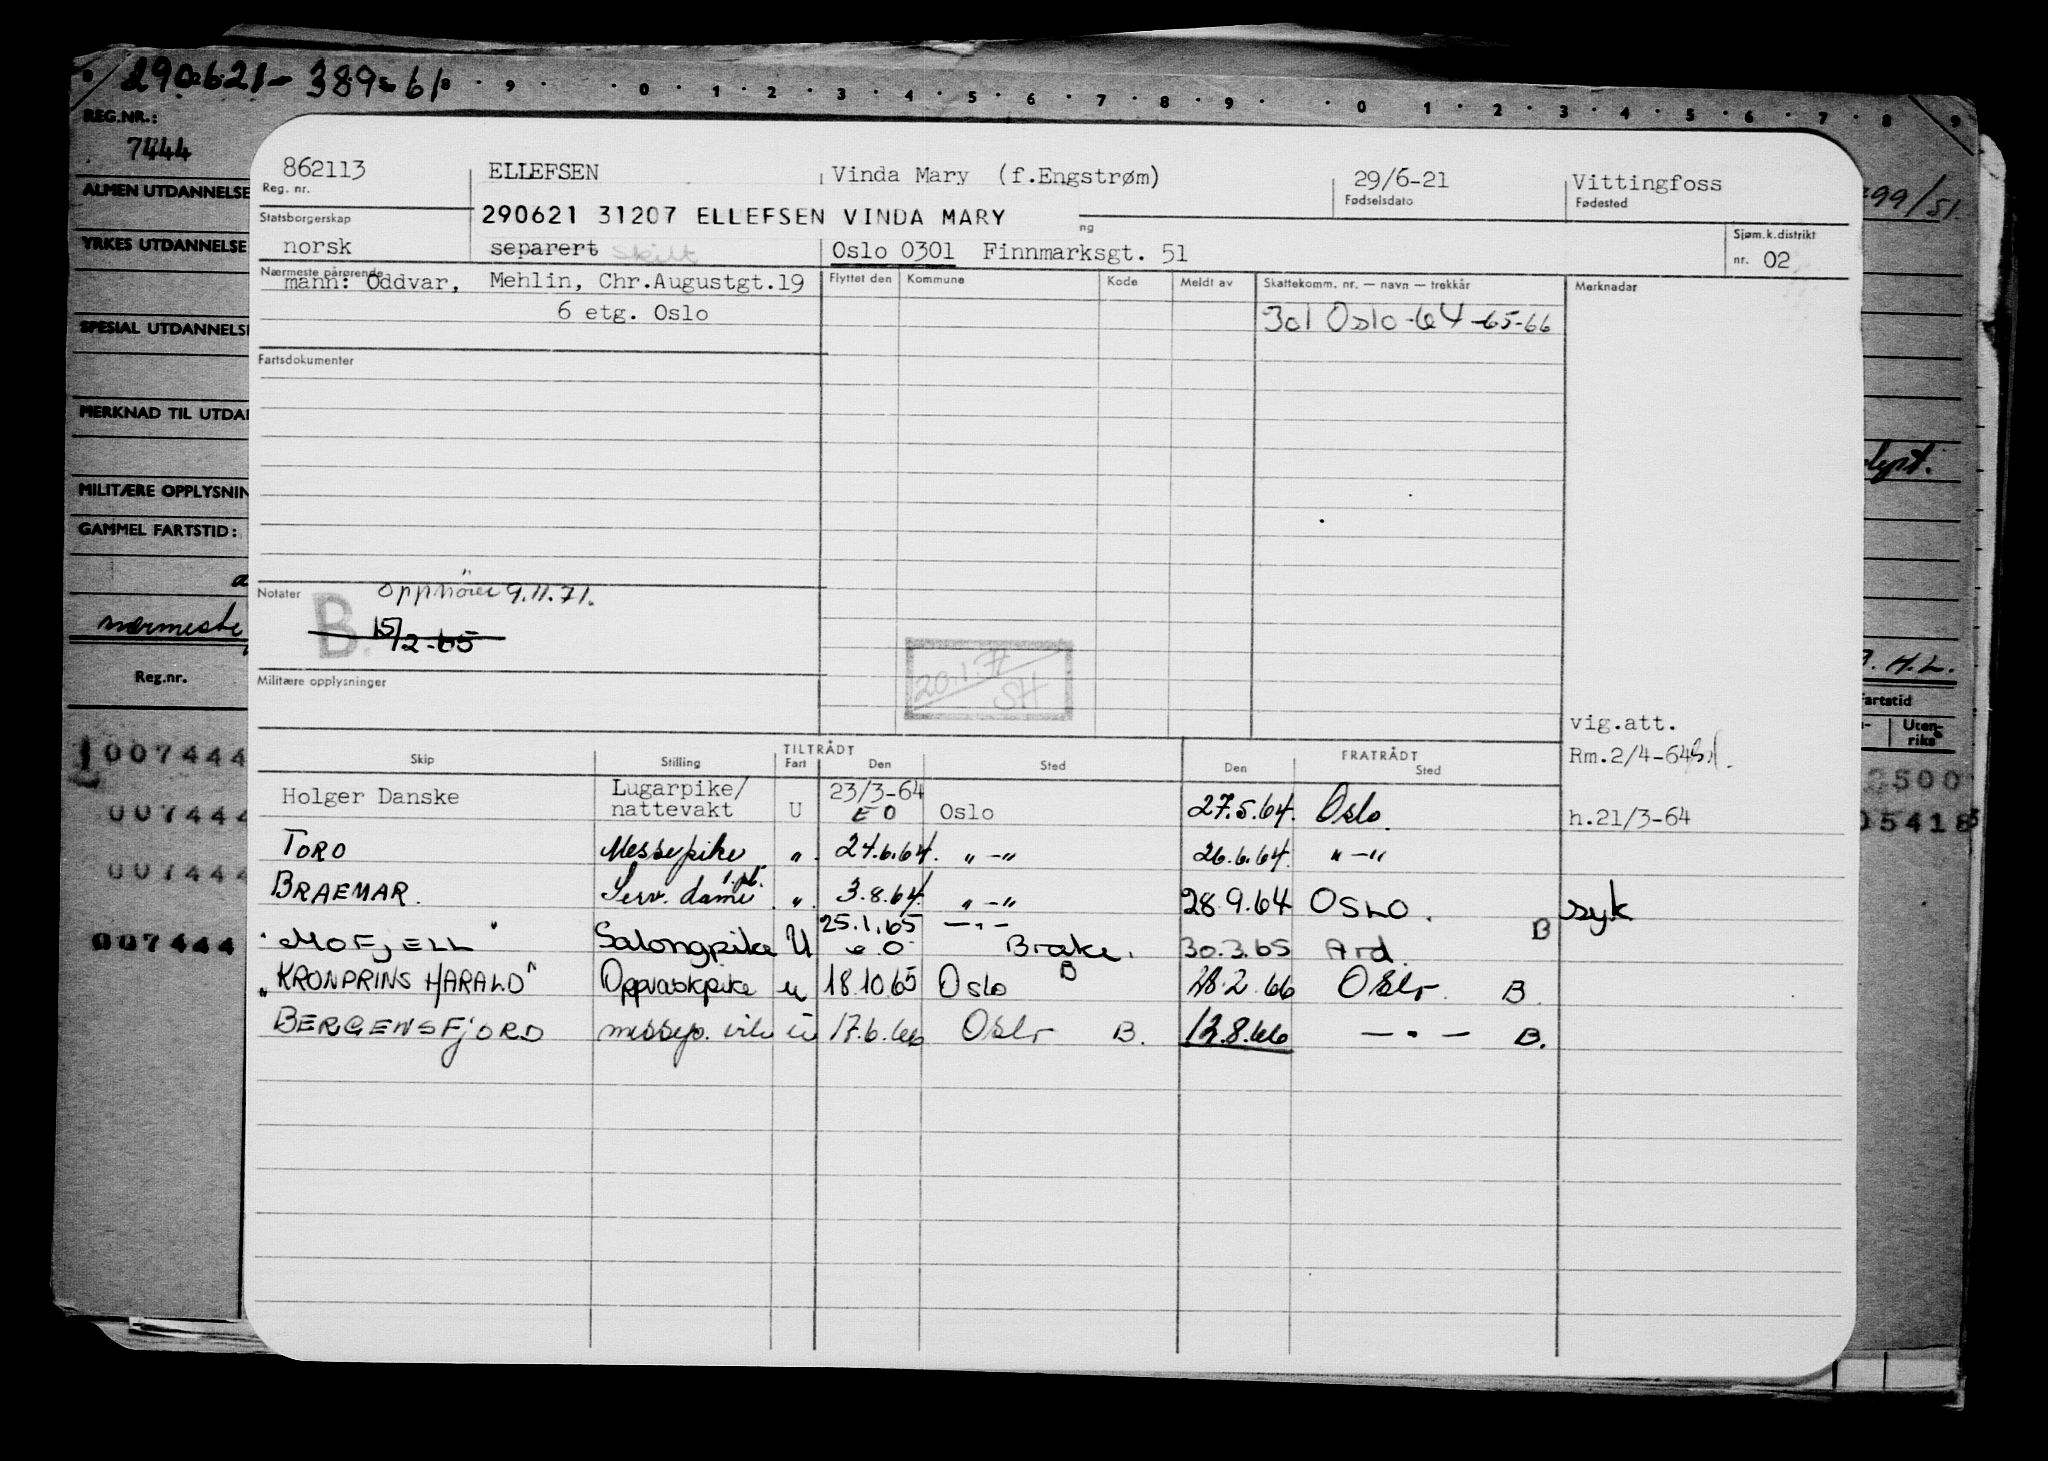 290621-389-61
8 · 9 · 0 · 1 · 2 · 3 · 4 · 5 · 6 · 7 · 8 · 9 · 0 · 1 · 2 · 3 · 4 · 5 · 6 · 7 · 8 · 9
REG.NR.:
7444
ALMEN UTDANNELSE
YRKES UTDANNELSE
SPESIAL UTDANNELSE
MERKNAD TIL UTDAN
MILITÆRE OPPLYSNIN
GAMMEL FARTSTID:
nærmeste
Reg.nr.
007444
007444
007444
007444
99/51
H.L.
Fartstid
Uten-
riks
500
05418
862113 ELLEFSEN Vinda Mary (f.Engstrøm) 29/6-21 Vittingfoss
Reg. nr. Fødselsdato Fødested
Statsborgerskap 290621 31207 ELLEFSEN VINDA MARY ng Sjøm.k.distrikt
norsk separert skilt Oslo 0301 Finnmarksgt. 51 nr. 02
Nærmeste pårørende Flyttet den Kommune Kode Meldt av Skattekomm. nr. — navn — trekkår Merknadar
mann: Oddvar, Mehlin, Chr.Augustgt.19
6 etg. Oslo 301 Oslo-64-65-66
Fartsdokumenter
Notater opphører 9.11.71.
B. 15/2-65
20.1.71
SH
Militære opplysninger
vig.att.
Rm.2/4-64
h.21/3-64
TILTRÅDT FRATRÅDT
Skip Stilling Fart Den Sted Den Sted
Holger Danske Lugarpike/ nattevakt U 23/3-64 EO Oslo 27.5.64. Oslo.
TORO Messepike " 24.6.64. "-" 26.6.64. "-"
BRAEMAR. Serv. dame 1.pl. " 3.8.64. "-" 28.9.64 OSLO. syk
"MOFJELL" Salongpike U 25.1.65 e.o. —"— Brake. B 30.3.65 Ard. B
"KRONPRINS HARALD" Oppvaskpike u 18.10.65 Oslo 28.2.66 Oslo. B
BERGENSFJORD messep. u 17.6.66 Oslo B. 12.8.66 —"— B.